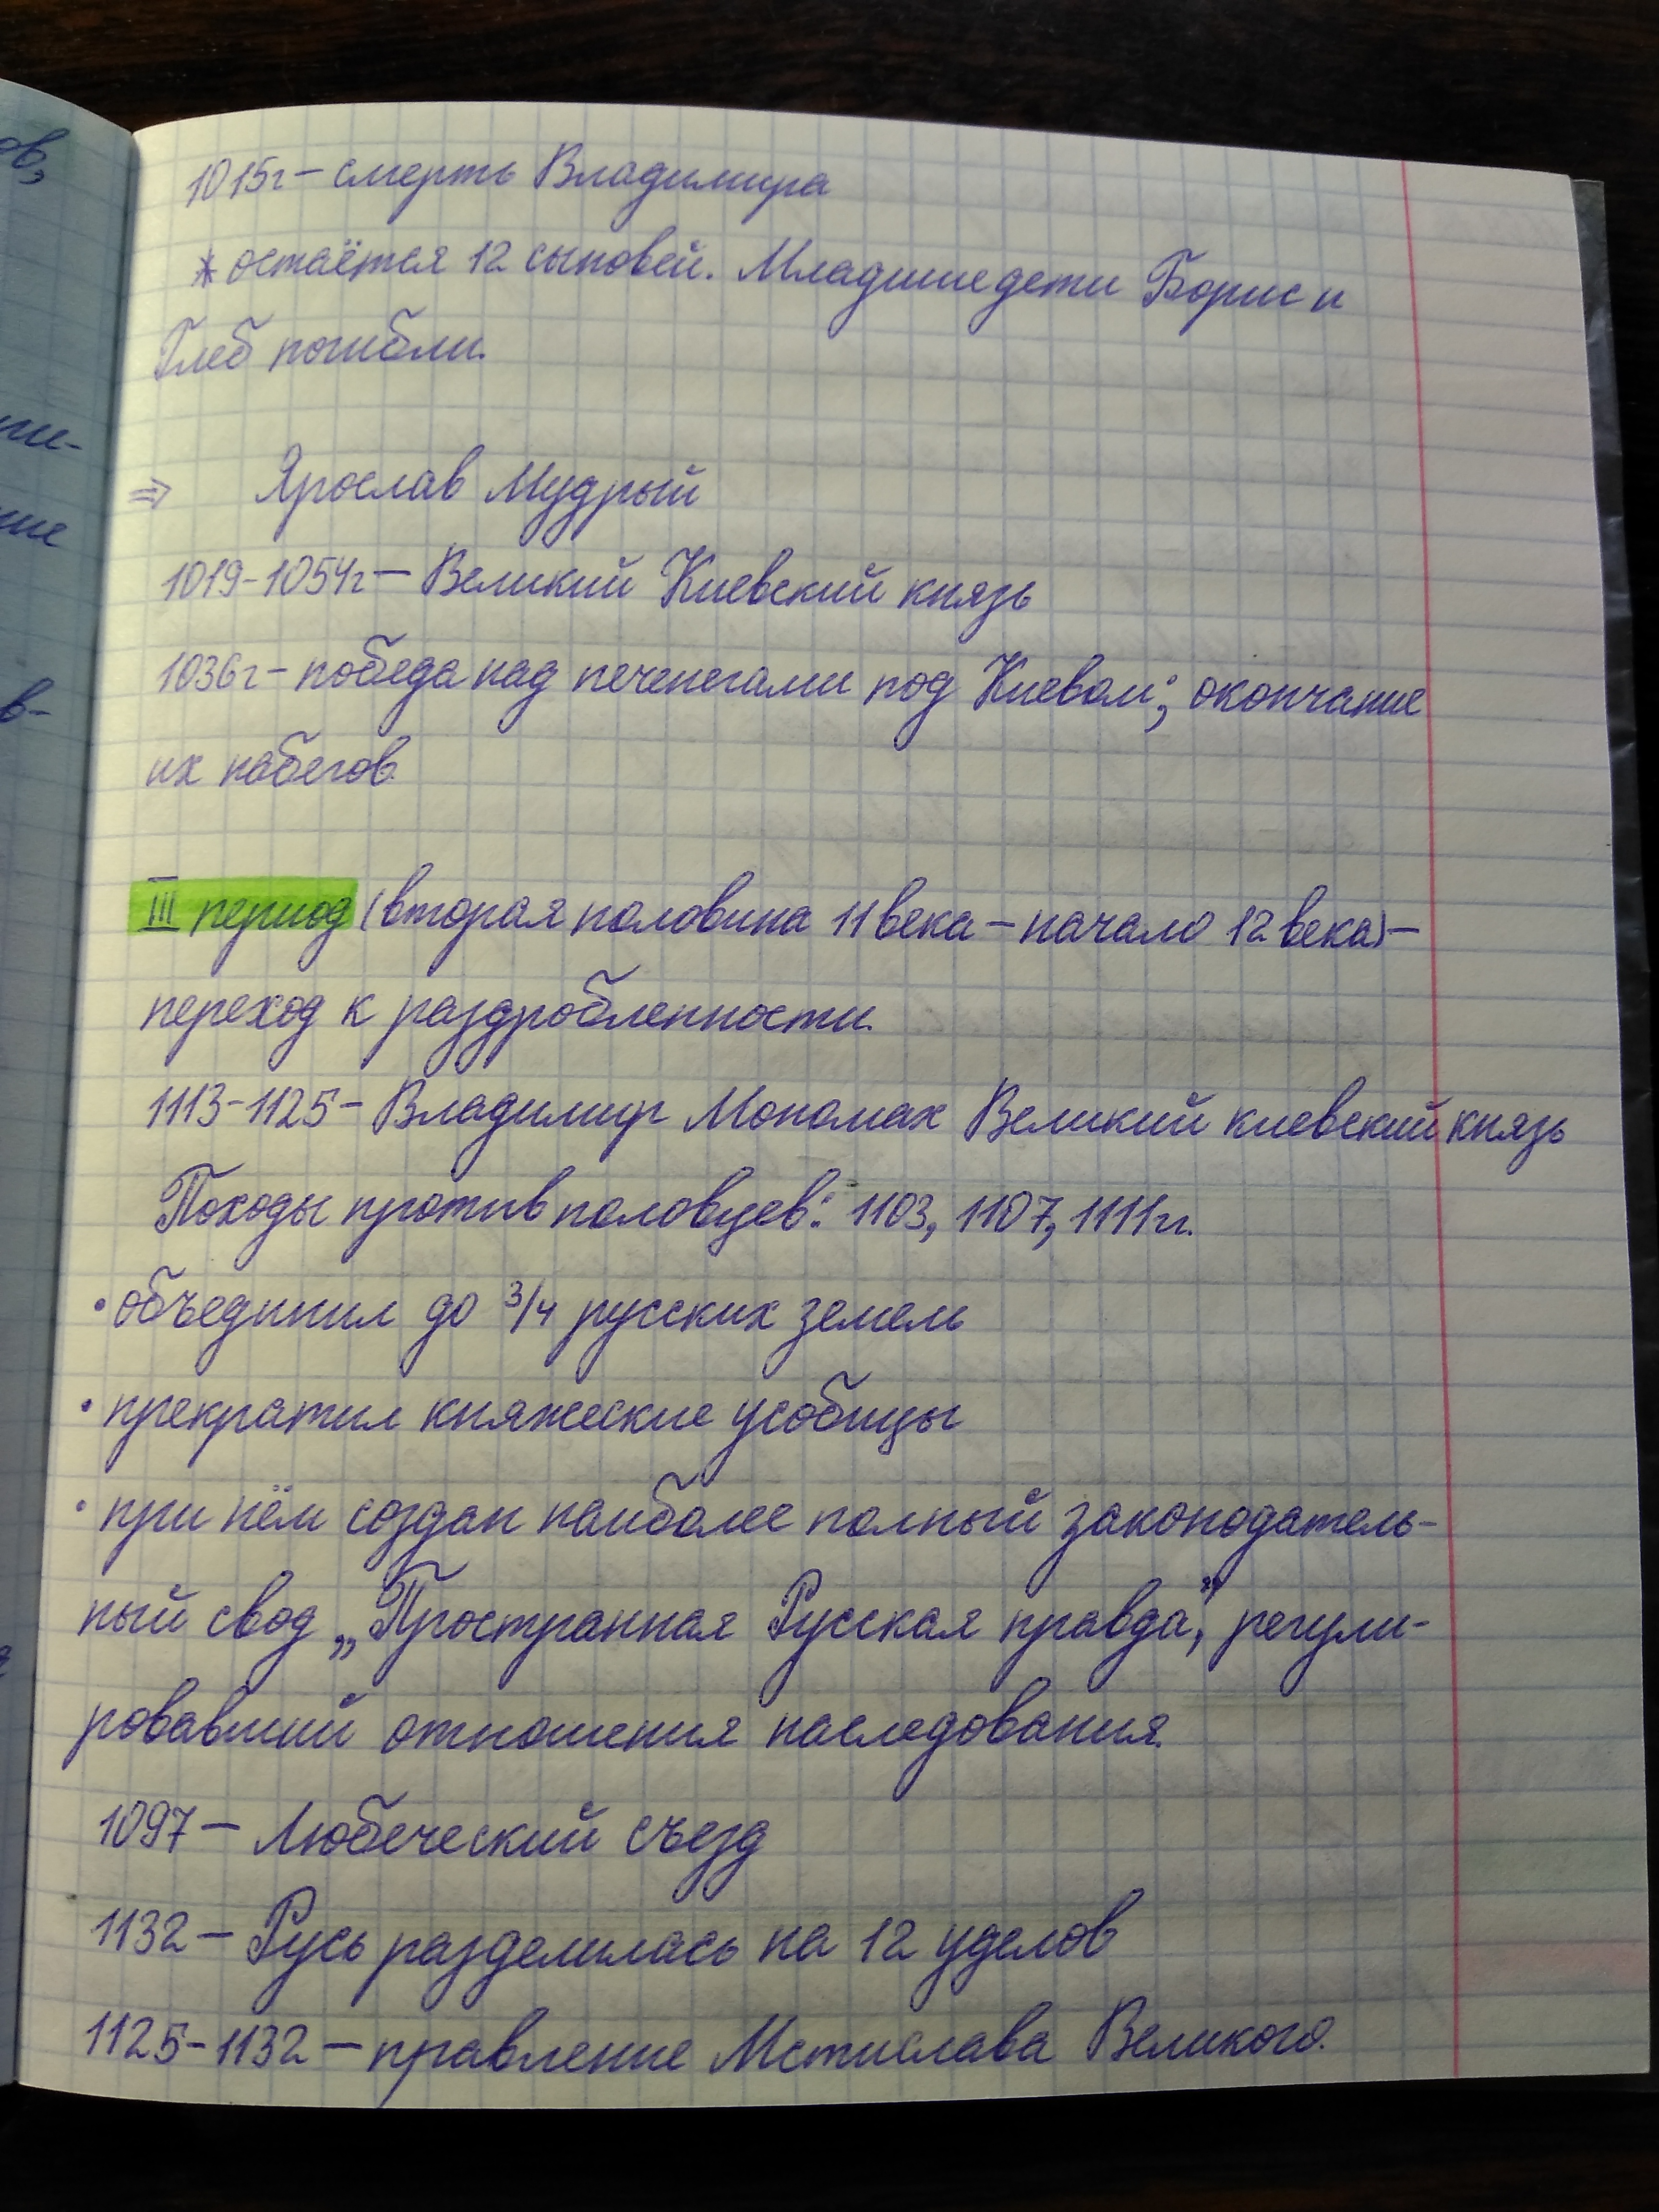 1015г – смерть Владимира
* остаётся 12 сыновей. Младшие дети Борис и
Глеб погибли.
⇒ Ярослав Мудрый
1019-1054г – Великий Киевский князь
1036г – победа над печенегами под Киевом; окончание
их набегов.
III период (вторая половина 11 века – начало 12 века) –
переход к раздробленности.
1113-1125 – Владимир Мономах Великий киевский князь
Походы против половцев: 1103, 1107, 1111гг.
• объединил до 3/4 русских земель
• прекратил княжеские усобицы
• при нём создан наиболее полный законодатель-
ный свод „Пространная Русская правда", регули-
ровавший отношения наследования.
1097 – Любеческий съезд
1132 – Русь разделилась на 12 уделов
1125-1132 – правление Мстислава Великого.